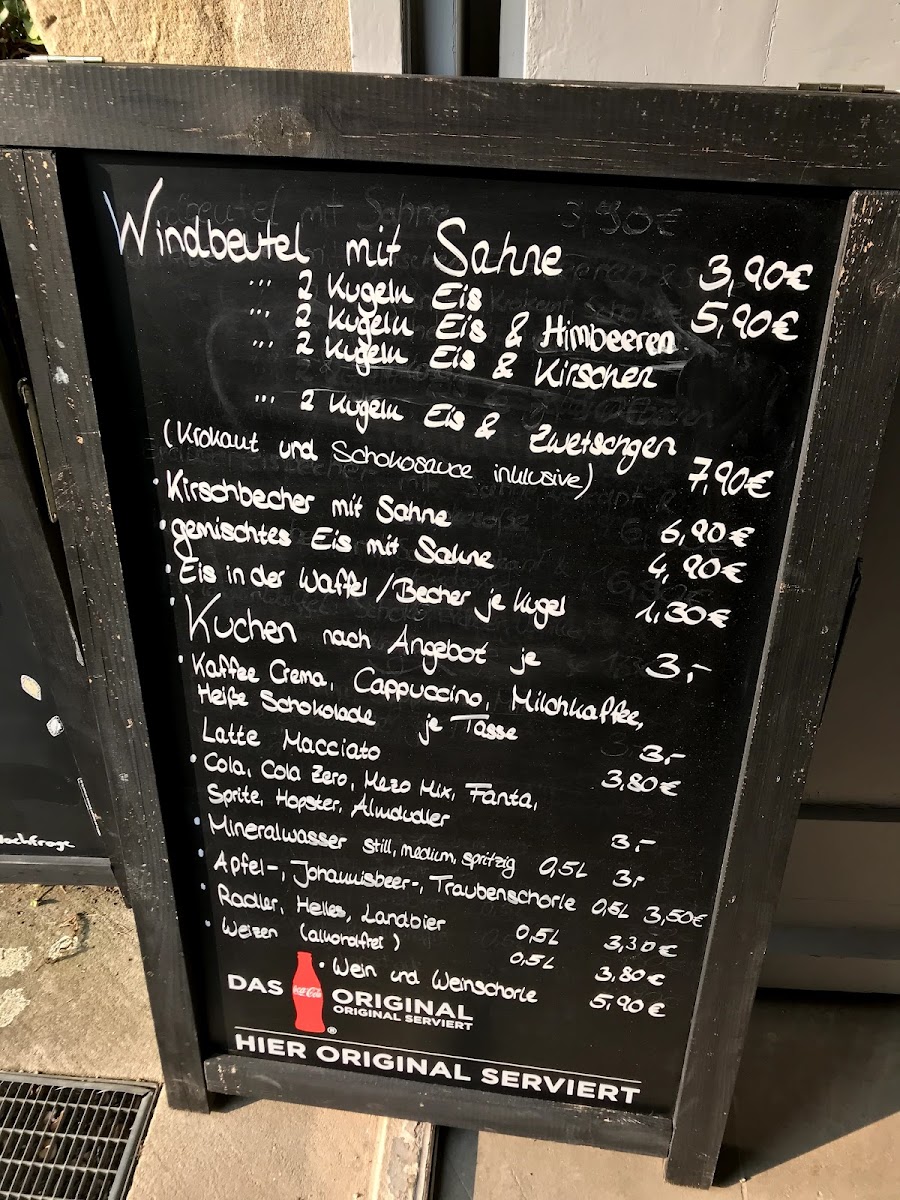 Windbeutel mit Sahne 3,90€
''' 2 Kugeln Eis 5,90€
''' 2 Kugeln Eis & Himbeeren
''' 2 Kugeln Eis & Kirschen
''' 2 Kugeln Eis & Zwetschgen
(Krokant und Schokosauce inklusive) 7,90€
• Kirschbecher mit Sahne 6,90€
• gemischtes Eis mit Sahne 4,90€
• Eis in der Waffel / Becher je Kugel 1,30€
• Kuchen nach Angebot je 3,-
• Kaffee Crema, Cappuccino, Milchkaffee,
Heiße Schokolade je Tasse 3,-
Latte Macciato 3,80€
• Cola, Cola Zero, Mezo Mix, Fanta,
Sprite, Hopster, Almdudler 3,-
• Mineralwasser still, medium, spritzig 0,5L 3,-
• Apfel-, Johannisbeer-, Traubenschorle 0,5L 3,50€
• Radler, Helles, Landbier 0,5L 3,30€
• Weizen (alkoholfrei) 0,5L 3,80€
• Wein und Weinschorle 5,90€
DAS Coca-Cola ORIGINAL
ORIGINAL SERVIERT
HIER ORIGINAL SERVIERT